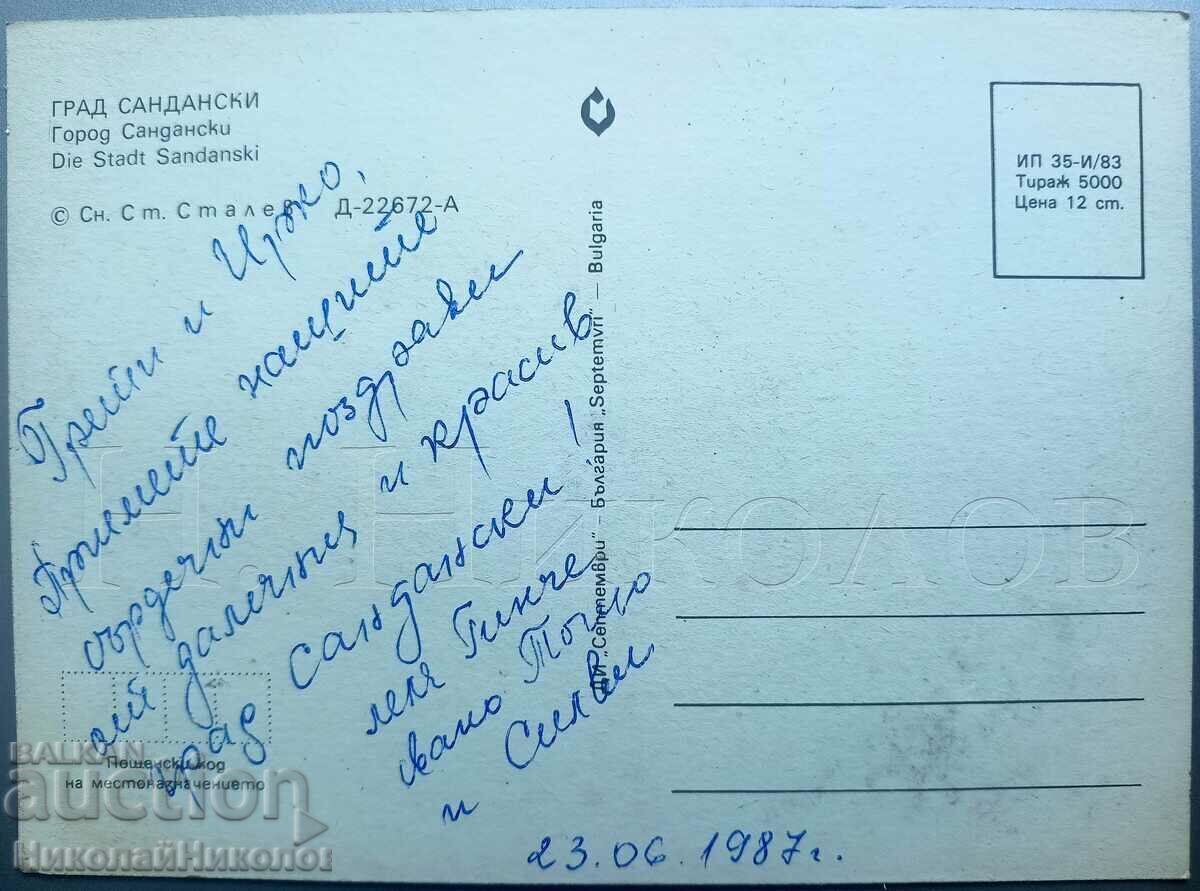 ГРАД САНДАНСКИ
Город Сандански
Die Stadt Sandanski
© Сн. Ст. Сталев Д-22672-А
ИП 35-И/83
Тираж 5000
Цена 12 ст.
ДИ „Септември" — България „Septemvri" — Bulgaria
и Цонко,
Приемете нашите
сърдечни поздрави
от далечния и красив
град Сандански!
леля Гинче
Тошо
и Силви
23.06.1987г.
Пощенски код
на местоназначението
Н. НИКОЛОВ
BALKAN
auction
НиколайНиколов